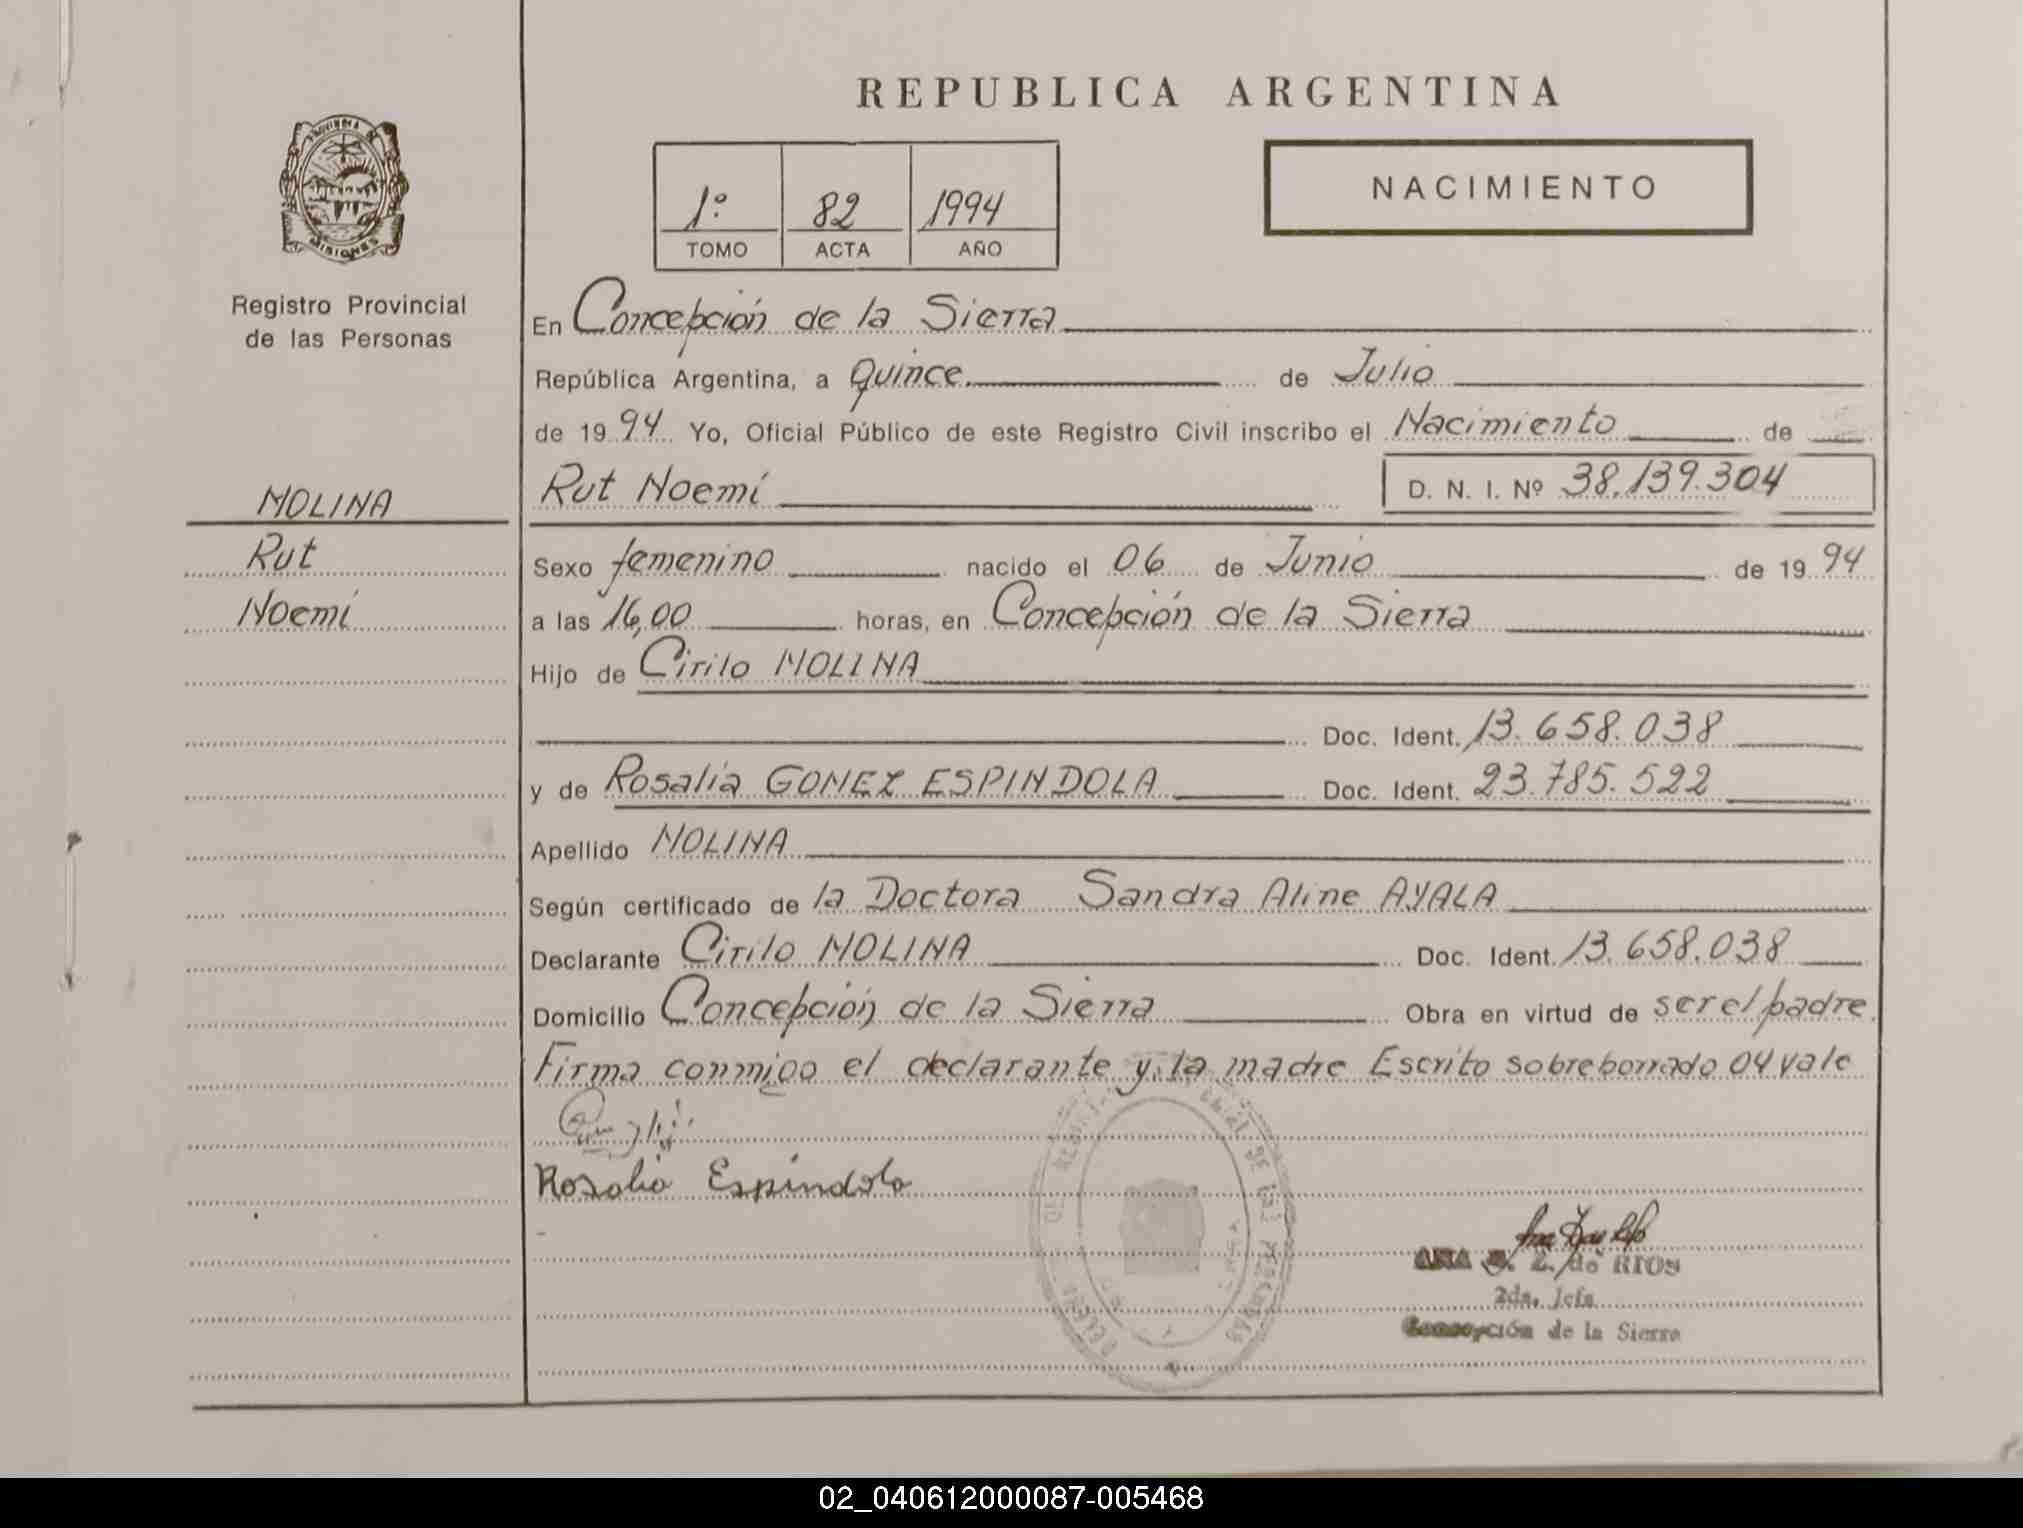 REPUBLICA ARGENTINA
PROVINCIA DE
MISIONES
Registro Provincial
de las Personas
1º 82 1994
TOMO ACTA AÑO
NACIMIENTO
En Concepción de la Sierra
República Argentina, a Quince. de Julio
de 1994 Yo, Oficial Público de este Registro Civil inscribo el Nacimiento de
Rut Noemí D. N. I. Nº 38.139.304
MOLINA
Rut
Noemí
Sexo femenino nacido el 06 de Junio de 1994
a las 16,00 horas, en Concepción de la Sierra
Hijo de Cirilo MOLINA
Doc. Ident. 13.658.038
y de Rosalia GOMEZ ESPINDOLA Doc. Ident. 23.785.522
Apellido MOLINA
Según certificado de la Doctora Sandra Aline AYALA
Declarante Cirilo MOLINA Doc. Ident. 13.658.038
Domicilio Concepción de la Sierra Obra en virtud de ser el padre.
Firma conmigo el declarante y la madre Escrito sobreborrado 04 vale
Rosalia Espíndola
ANA Z. de RIOS
2da. Jefa
Concepción de la Sierra
02_040612000087-005468